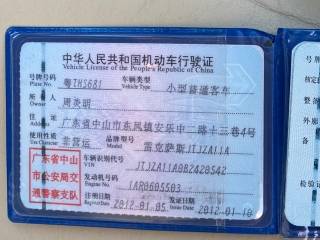 中华人民共和国机动车行驶证
Vehicle License of the People's Republic of China
号牌号码 粤THS681 车辆类型 小型普通客车
Plate No. Vehicle Type
所有人 周英明
Owner
住址 广东省中山市东凤镇安乐中二路十三巷4号
Address
使用性质 非营运 品牌型号 雷克萨斯JTJZA11A
Model
广东省中山
市公安局交
通警察支队
车辆识别代号 JTJZA11A0B2420542
VIN
发动机号码 1AR0605503
Engine No.
注册日期 2012-01-05 发证日期 2012-01-10